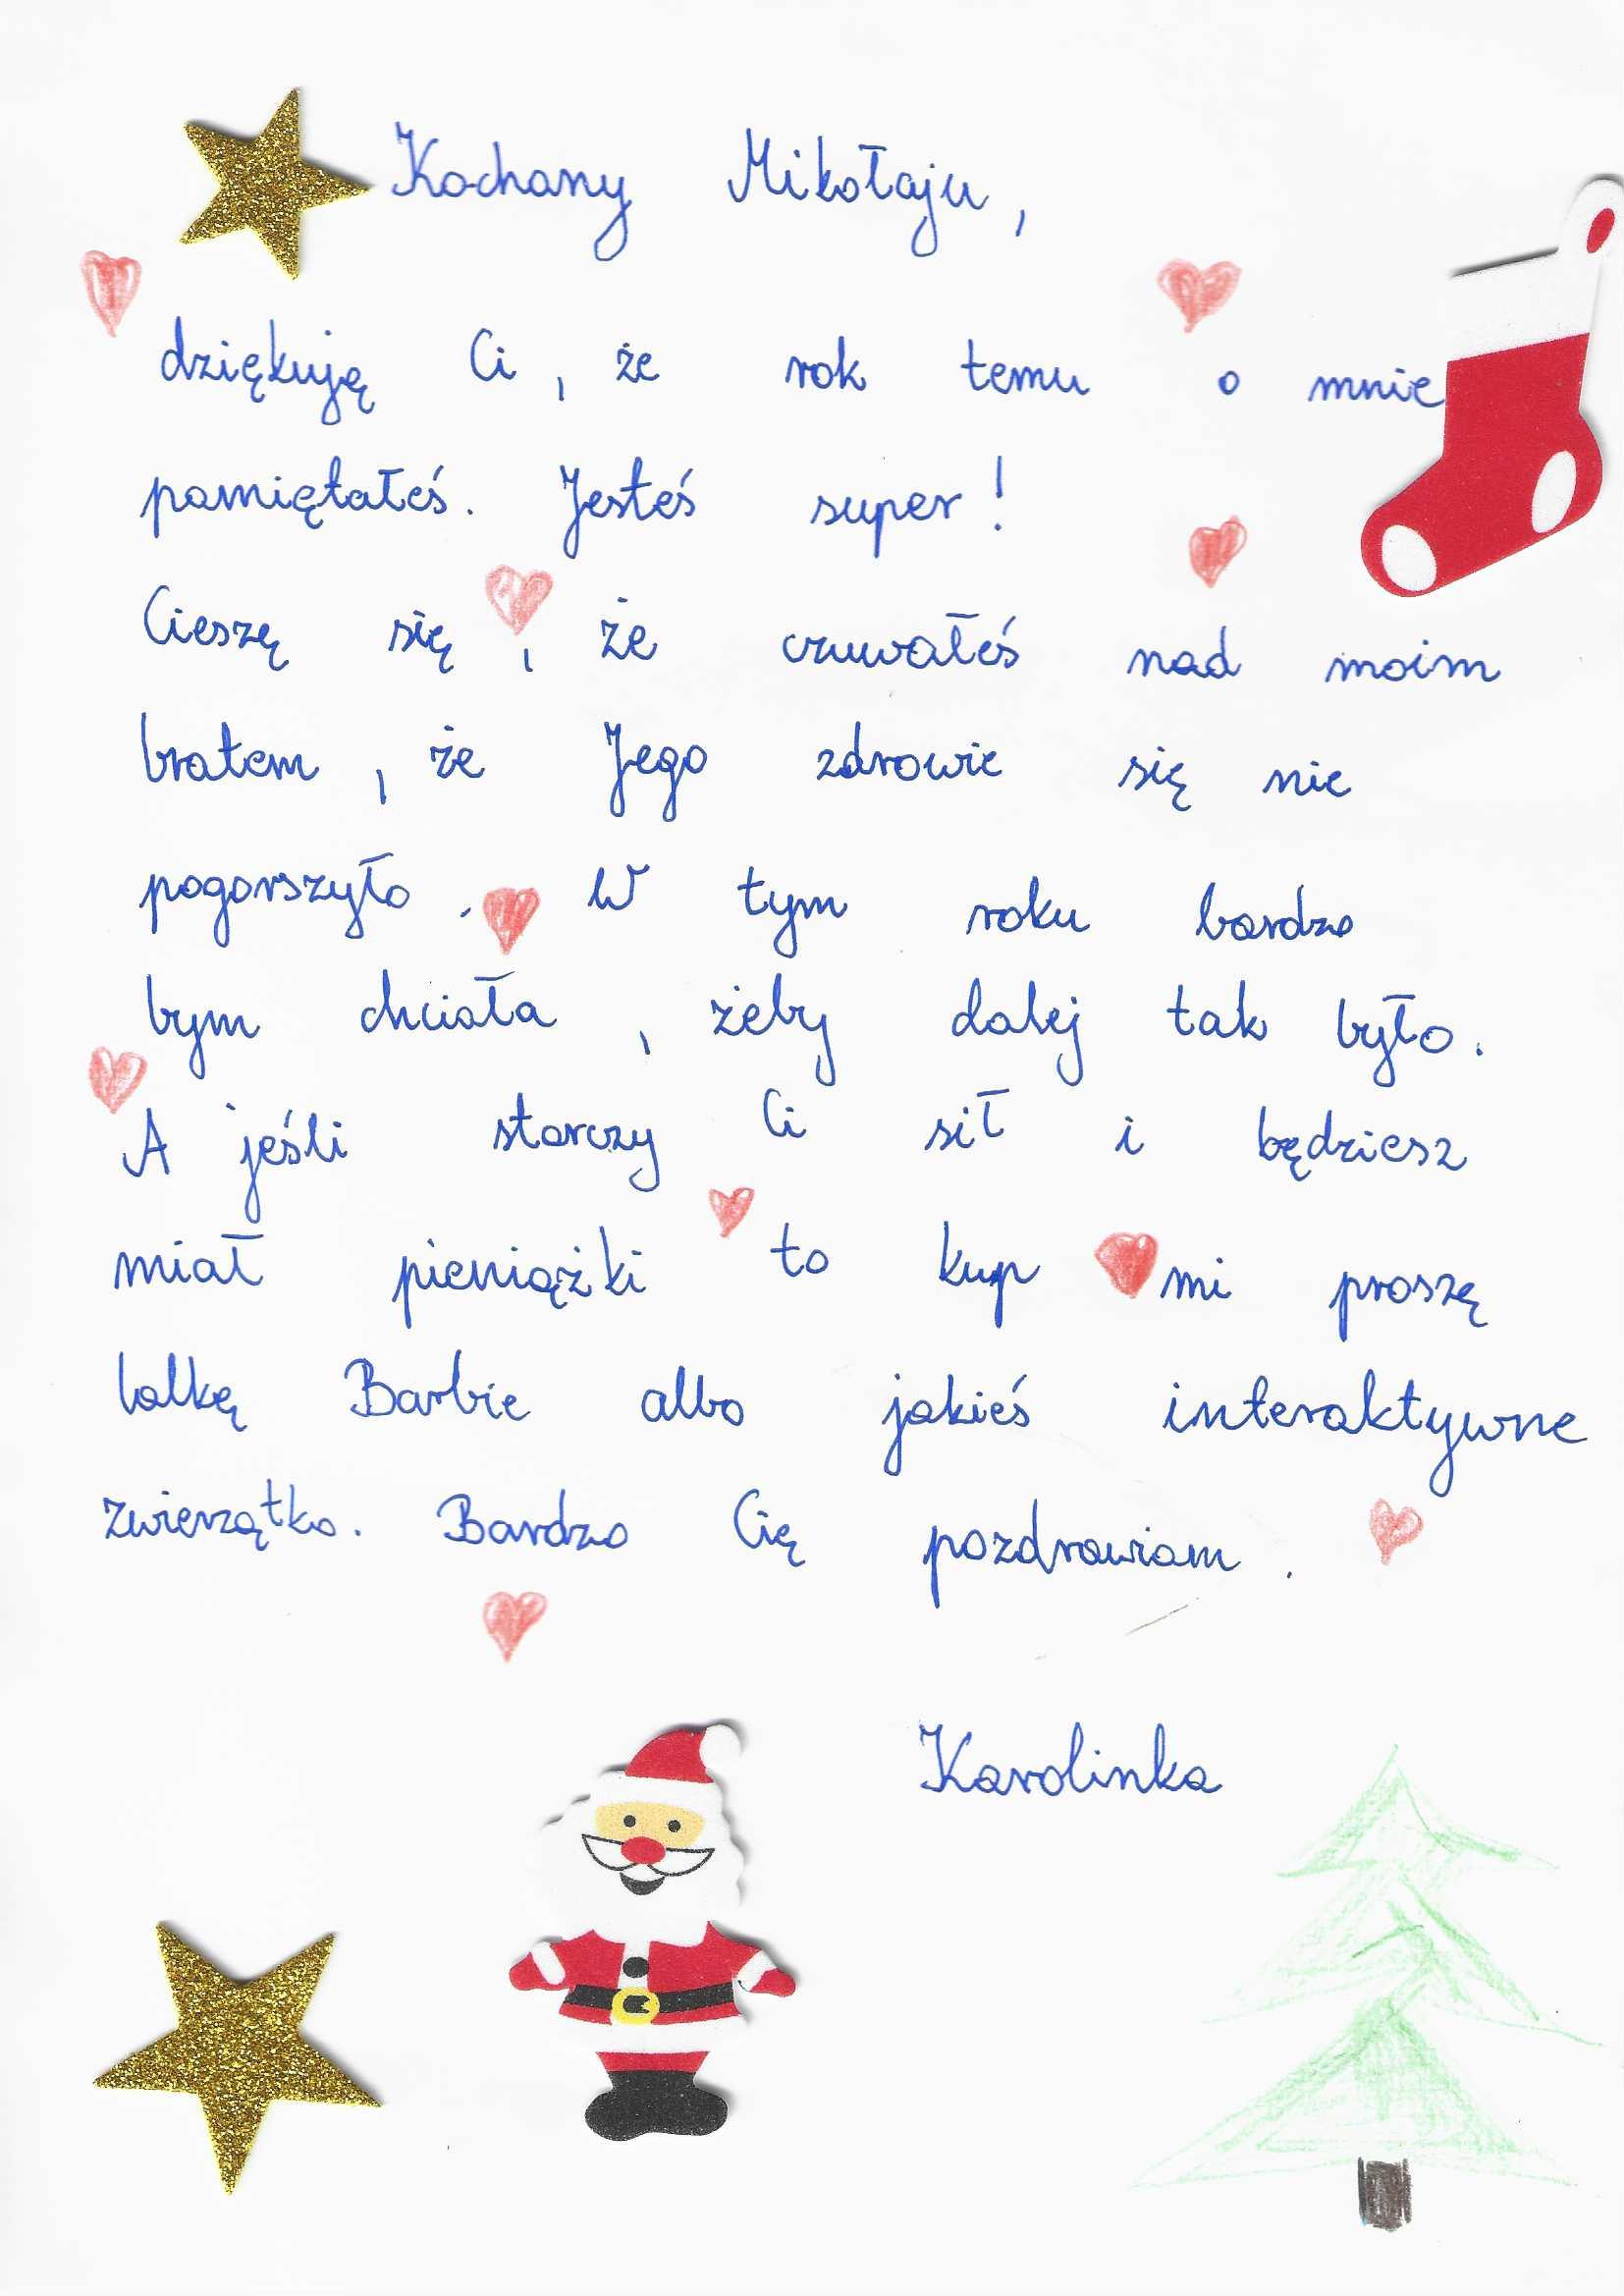 Kochany Mikołaju,
dziękuję Ci, że rok temu o mnie
pamiętałeś. Jesteś super!
Cieszę się, że czuwałeś nad moim
bratem, że Jego zdrowie się nie
pogorszyło. W tym roku bardzo
bym chciała, żeby dalej tak było.
A jeśli starczy Ci sił i będziesz
miał pieniążki to kup mi proszę
lalkę Barbie albo jakieś interaktywne
zwierzątko. Bardzo Cię pozdrawiam.
Karolinka